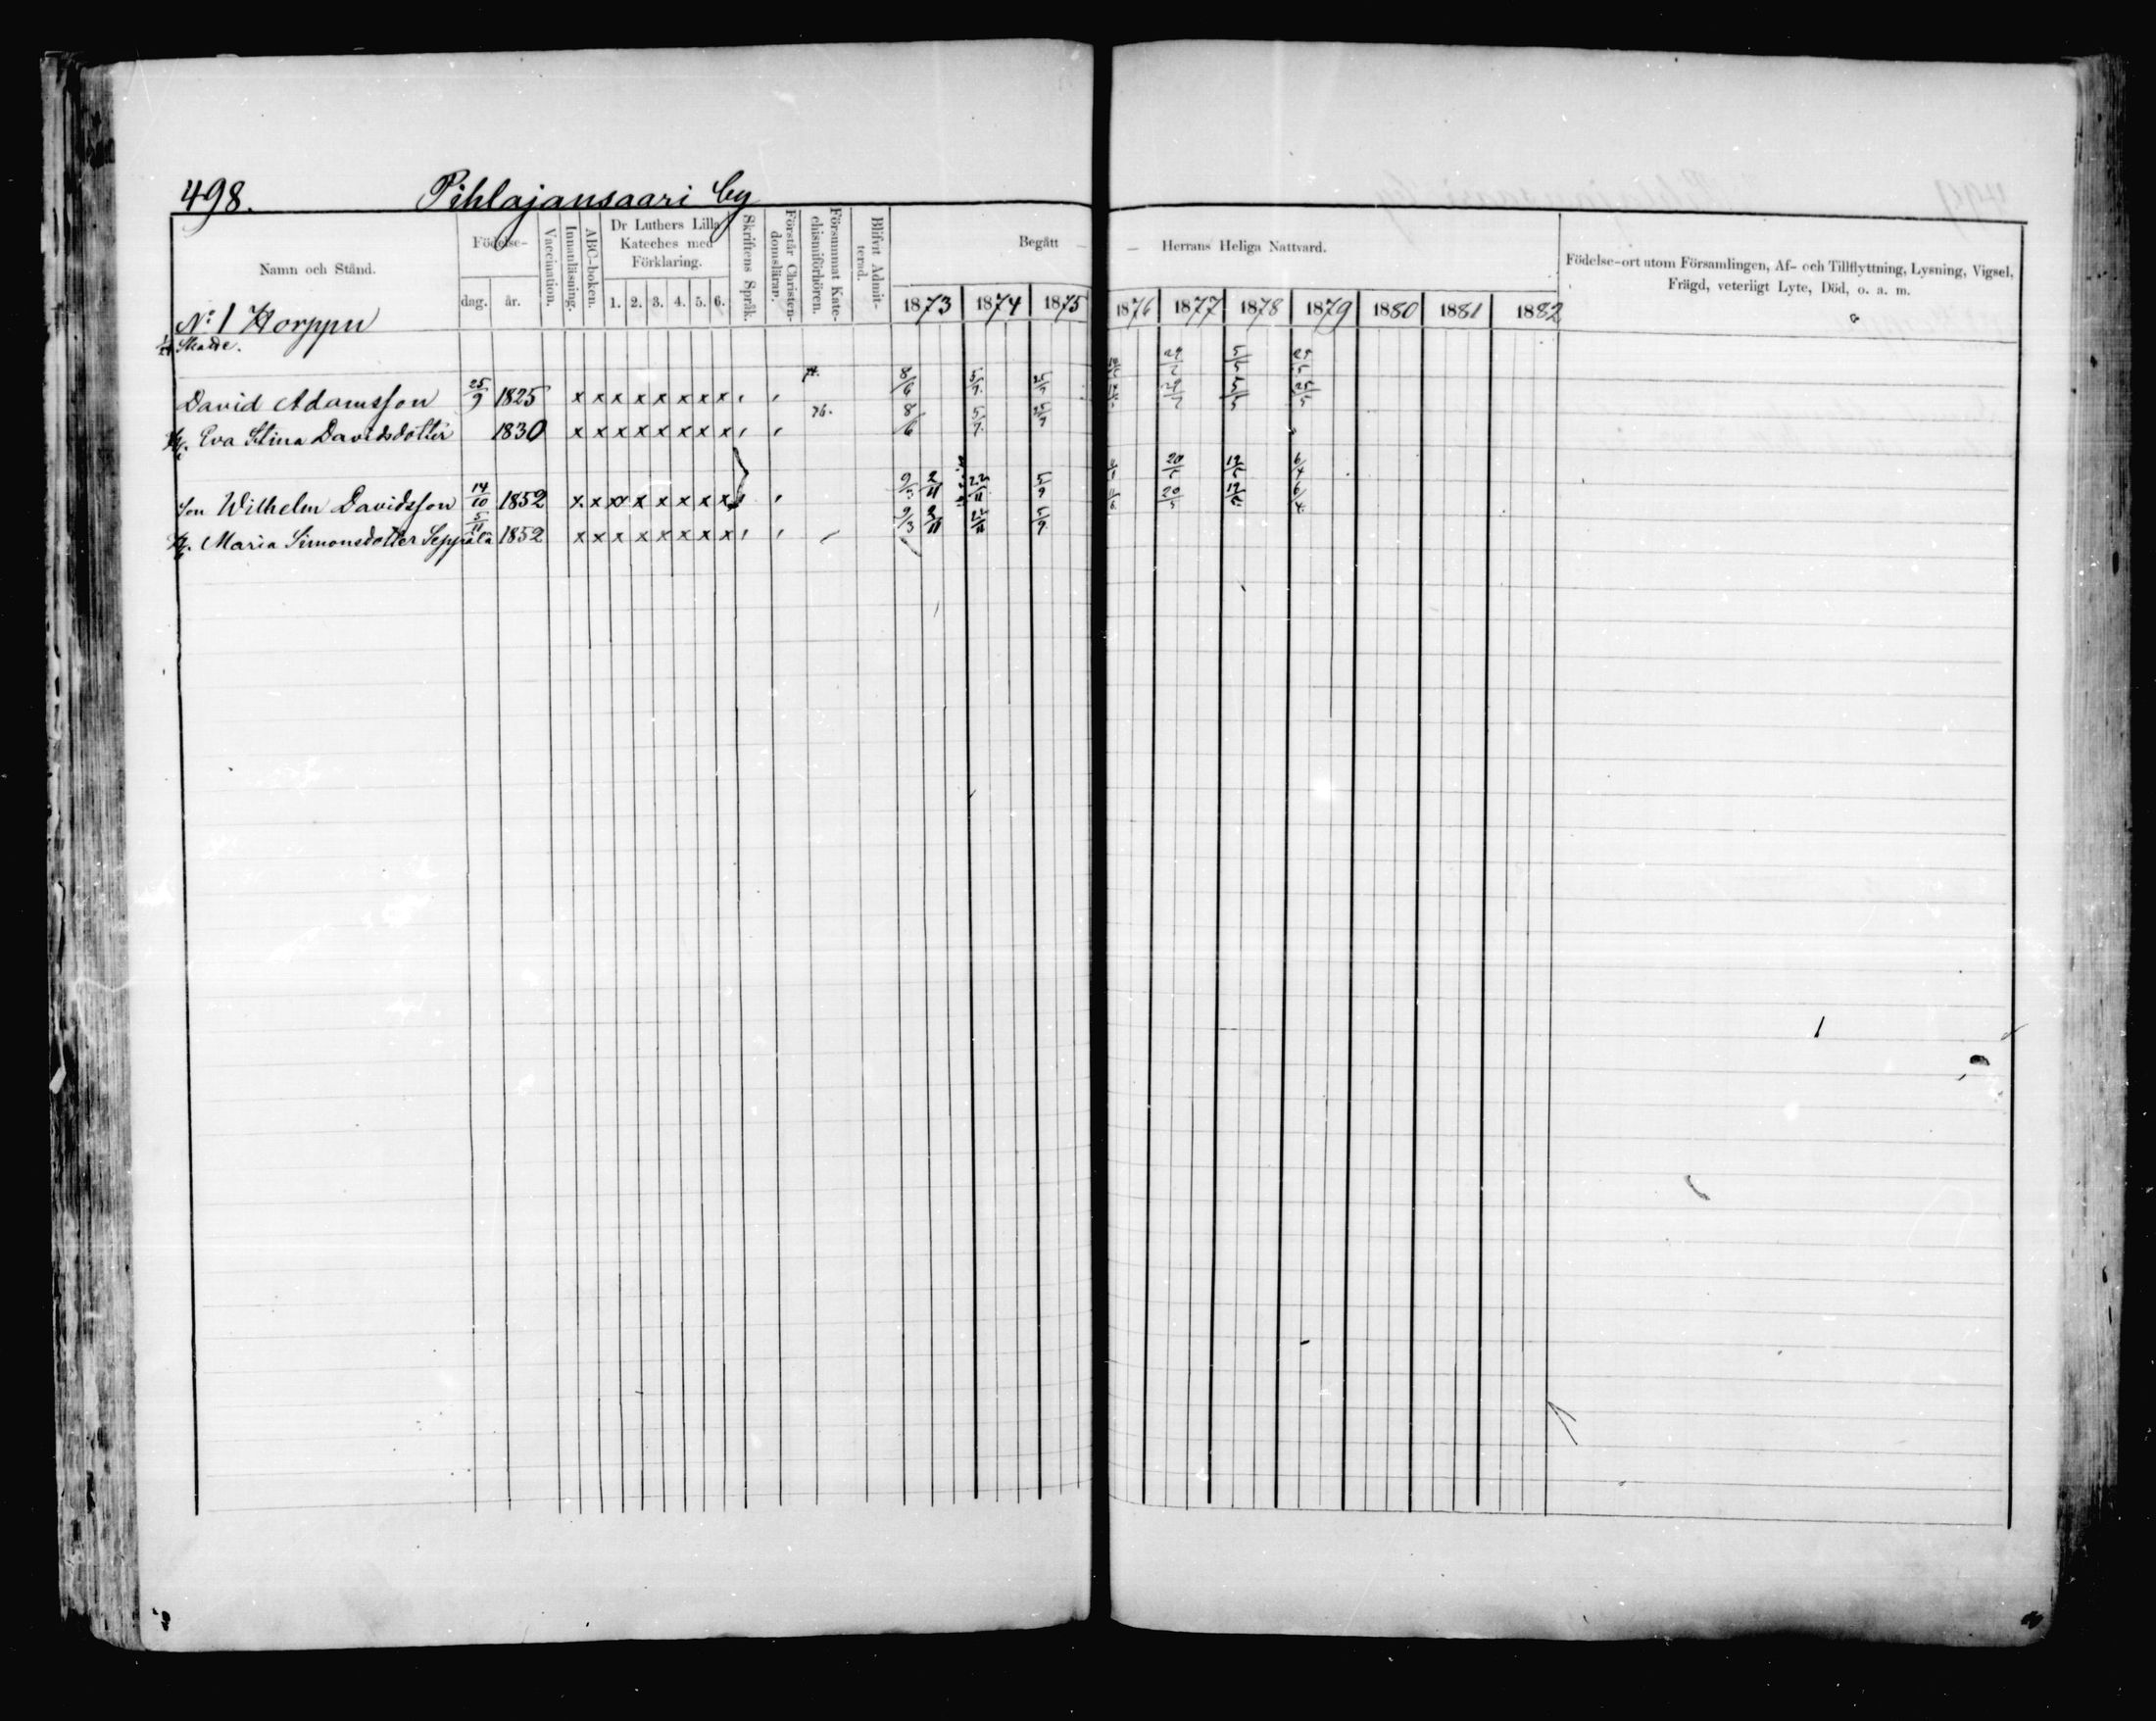 498. Pihlajansaari by
Namn och Stånd.
Födelse-
dag. år.
Vaccination.
Innanläsning.
ABC-boken.
Dr Luthers Lilla
Kateches med
Förklaring.
1. 2. 3. 4. 5. 6.
Skriftens Språk.
Förstår Christen-
domslärar.
Försummat Kate-
chismiförhören.
Blifvit Admit-
terad.
Begått — — Herrans Heliga Nattvard.
1873 1874 1875 1876 1877 1878 1879 1880 1881 1882
Födelse-ort utom Församlingen, Af- och Tillflyttning, Lysning, Vigsel,
Frägd, veterligt Lyte, Död, o. a. m.
No 1 Korppu
1/24 Skatte.
David Adamsson 25/9 1825 x x x x x x x x 8/6 5/7
Eva Stina Davidsdotter 1830 x x x x x x x x 76. 8/6 5/7
Son Wilhelm Davidsson 14/10 1852 x x x x x x x x 9/3 2/11 22/11 5/9 20/5 6/4
Maria Simonsdotter Seppälä 5/11 1852 x x x x x x x x 9/3 2/11 5/9 20/5 6/4